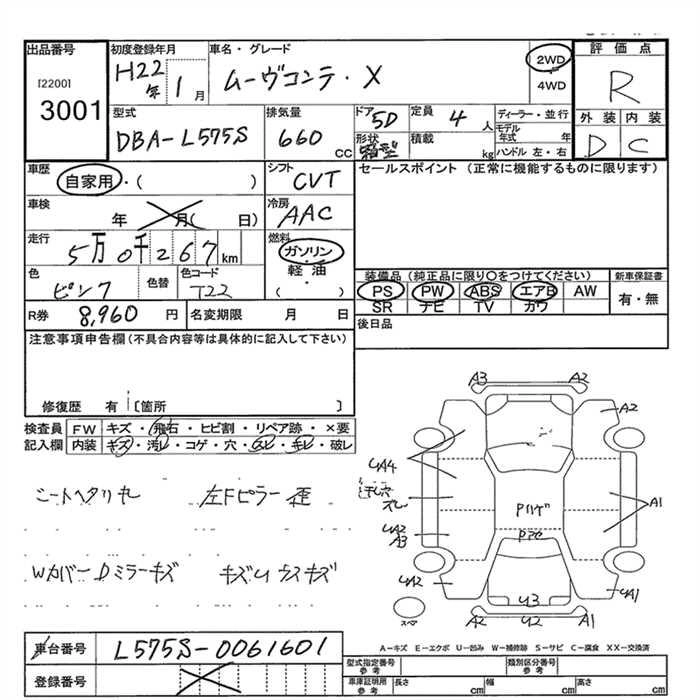 出品番号
[2200]
3001
初度登録年月
H22年 1月
車名・グレード
ムーヴコンテ・X
2WD
4WD
評価点
R
外装 内装
D C
型式
DBA-L575S
排気量
660 CC
ドア 5D
形状 箱型
定員 4 人
積載 kg
ディーラー・並行
モデル年式 年
ハンドル 左・右
車歴
自家用・( )
シフト
CVT
セールスポイント (正常に機能するものに限ります)
車検
年 月( 日)
冷房
AAC
走行
5万0千267 km
燃料
ガソリン・
軽油
( )
色
ピンク
色替
色コード
T22
装備品 (純正品に限り○をつけてください)
PS PW ABS エアB AW
SR ナビ TV カワ
新車保証書
有・無
R券 8,960 円
名変期限 月 日
後日品
注意事項申告欄(不具合内容等は具体的に記入して下さい)
修復歴 有 [箇所 ]
検査員記入欄
FW キズ・飛石・ヒビ割・リペア跡・×要
内装 キズ・汚レ・コゲ・穴・スレ・キレ・破レ
シートヘタリ 左Fピラー 歪
Wカバー Dミラーキズ キズU ウスキズ
A3 A2
A2
UA4
ズレ
A1
UA2
A3
Pハゲ
UA2
U3
UA1
A2 U2 A1
スペア
A-キズ E-エクボ U-凹み W-補修跡 S-サビ C-腐食 XX-交換済
車台番号 L575S-0061601
登録番号
型式指定番号
参考
類別区分番号
参考
車庫証明用
参考
長さ cm
幅 cm
高さ cm